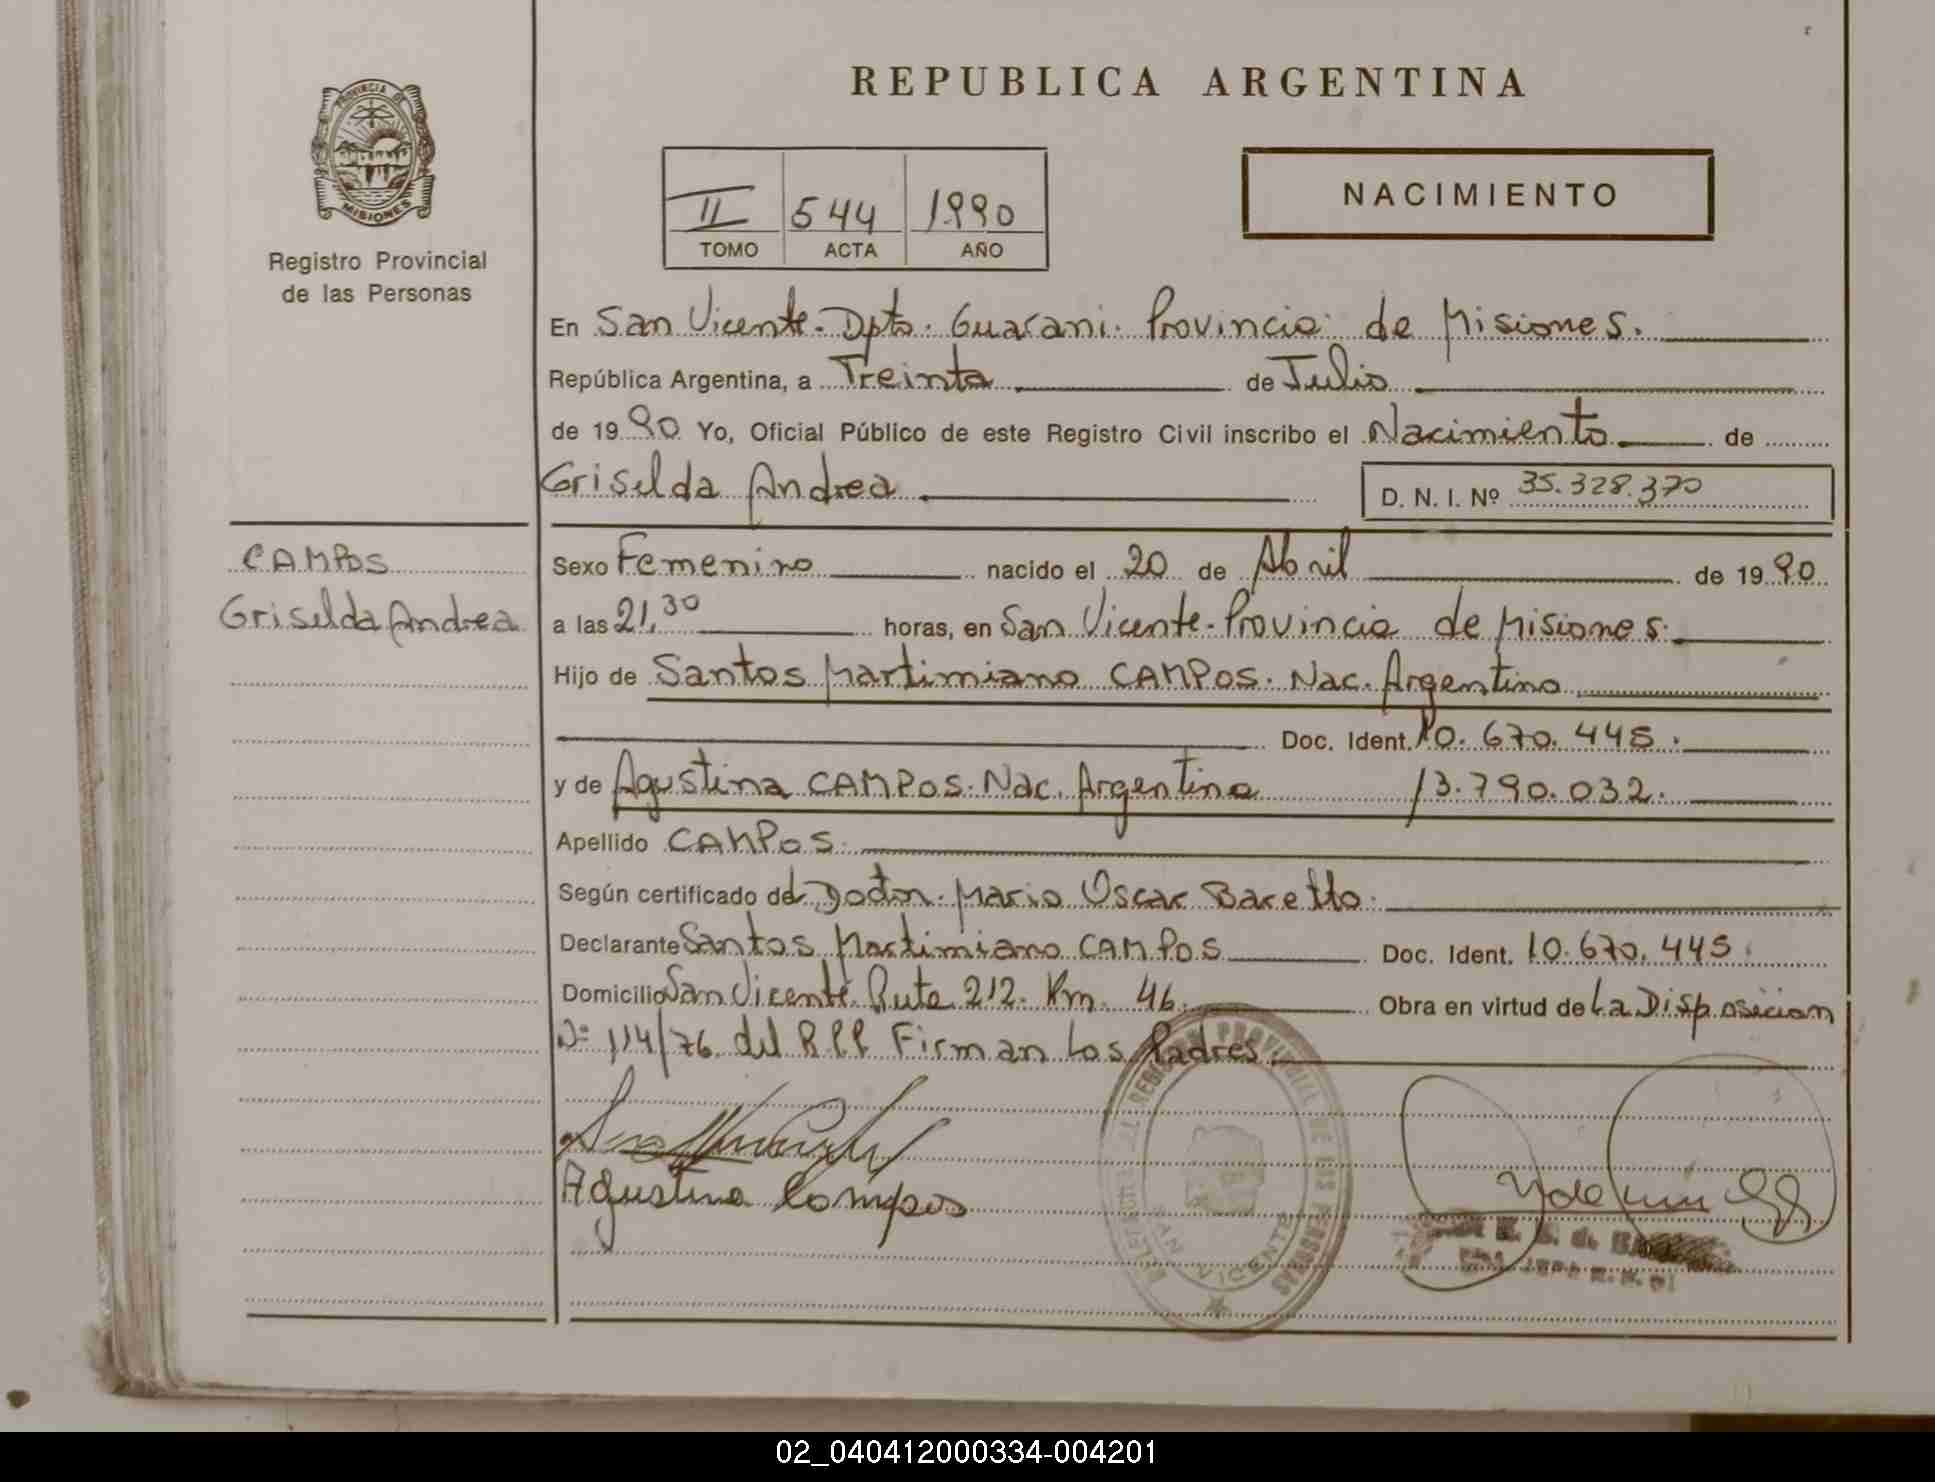 REPUBLICA ARGENTINA
PROVINCIA DE
MISIONES
Registro Provincial
de las Personas
II 544 1990
TOMO ACTA AÑO
NACIMIENTO
En San Vicente. Dpto. Guarani. Provincia de Misiones.
República Argentina, a Treinta de Julio
de 1990 Yo, Oficial Público de este Registro Civil inscribo el Nacimiento de
Griselda Andrea D. N. I. Nº 35.328.370
CAMPOS
Griselda Andrea
Sexo Femenino nacido el 20 de Abril de 1990
a las 21,30 horas, en San Vicente. Provincia de Misiones.
Hijo de Santos Martimiano CAMPOS. Nac. Argentino
Doc. Ident. 10.670.445.
y de Agustina CAMPOS. Nac. Argentina 13.790.032.
Apellido CAMPOS.
Según certificado del Doctor. Mario Oscar Baretto.
Declarante Santos Martimiano CAMPOS Doc. Ident. 10.670.445.
Domicilio San Vicente. Ruta 212. Km. 46. Obra en virtud de La Disposicion
Nº 114/76 del RPP Firman Los Padres.
Agustina Campos
REGISTRO PROVINCIAL DE LAS PERSONAS
SAN VICENTE
02_040412000334-004201